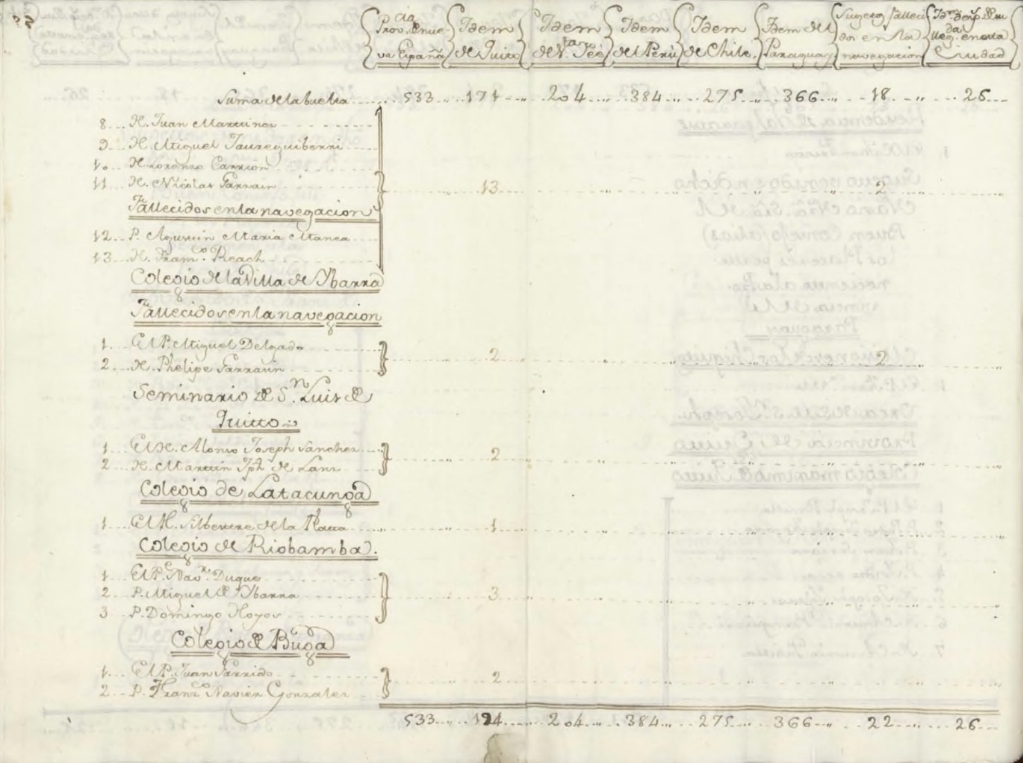 Prov.cia de nue
va España
Idem
de Quito
Idem
de S.ta Feé
Idem
del Perú
Idem
de Chile
Idem del
Paraguay
Sugetos falleci
dos en la
navegacion
Ciudad
Suma de la buelta 533 171 204 384 275 366 18 26
8 H. Juan Martinez
9 H. Miguel Jaureguiberri
10 H. Lorenzo Carrion
11 H. Nicolas Sarrain 13 2
Fallecidos en la navegacion
12 P. Agustin Maria Manca
13 H. Fran.co Reach
Colegio de la Villa de Ybarra
Fallecidos en la navegacion
1 El P. Miguel Delgado
2 H. Phelipe Sarraun 2 2
Seminario de S.n Luis de
Quitto
1 El H. Alonso Joseph Sanchez
2 H. Martin Jph de Lanz 2
Colegio de Latacunga
1 El H. Silvestre de la Platta 1
Colegio de Riobamba.
1 El P.e Nav.o Duque
2 P. Miguel de Ybarra 3
3 P. Domingo Hoyos
Colegio de Buga
1 El P. Juan Garrido
2 P. Franz Xavier Gonzalez 2
533 194 204 384 275 366 22 26